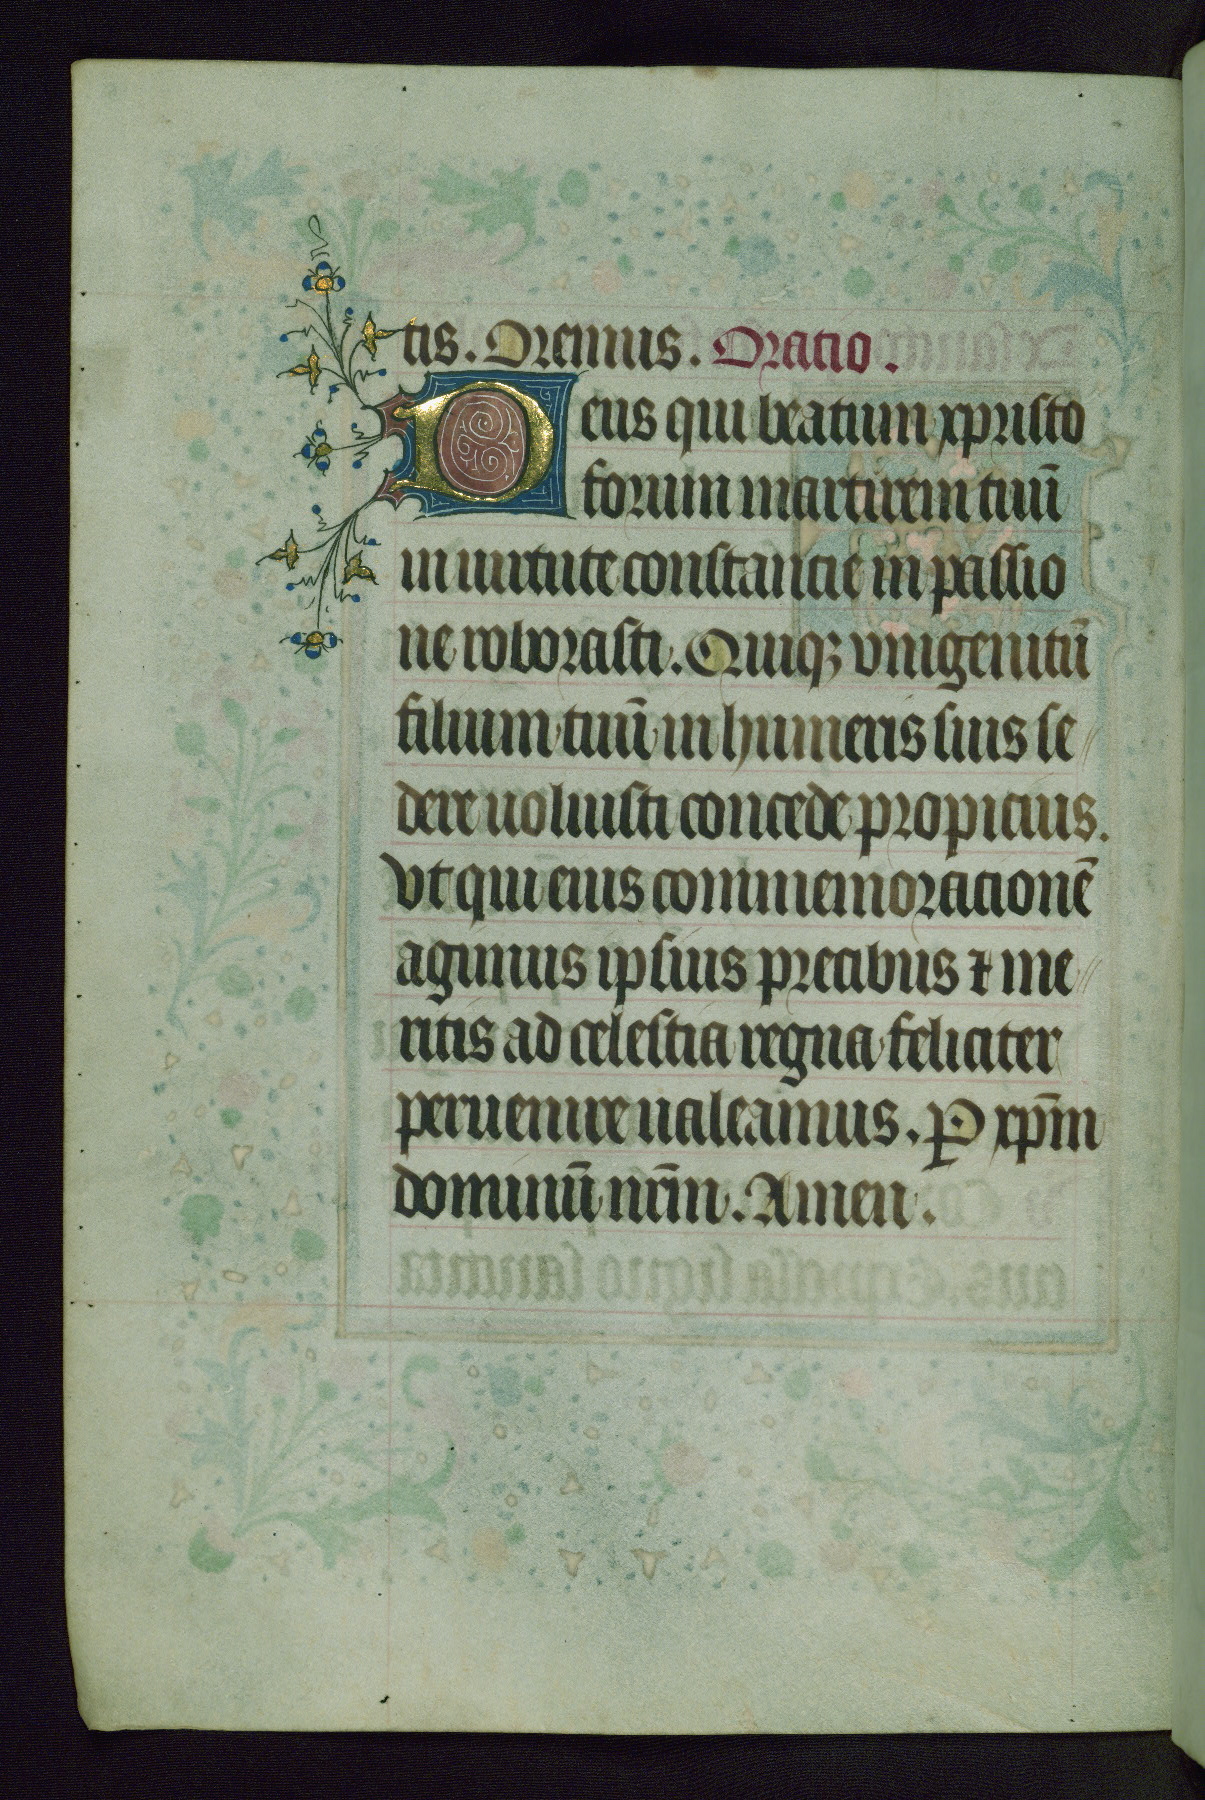 tis. Oremus. Oratio.
Deus qui beatum xpristo
forum martirem tuū
in uirtute constancie in passio
ne roborasti. Quiqꝫ vnigenitū
filium tuū in humeris suis se
dere uoluisti concede propicius.
Vt qui eius commemoracionē
agimus ipsius precibus ⁊ me
ritis ad celestia regna feliciter
peruenire ualeamus. P xp̄m
dominū nr̄m. Amen.